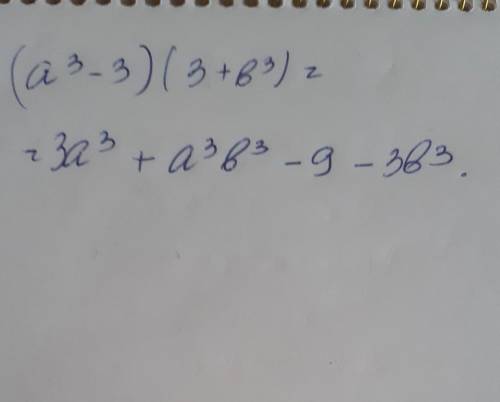 (a³-3)(3+b³)=
=3a³+a³b³-9-3b³.